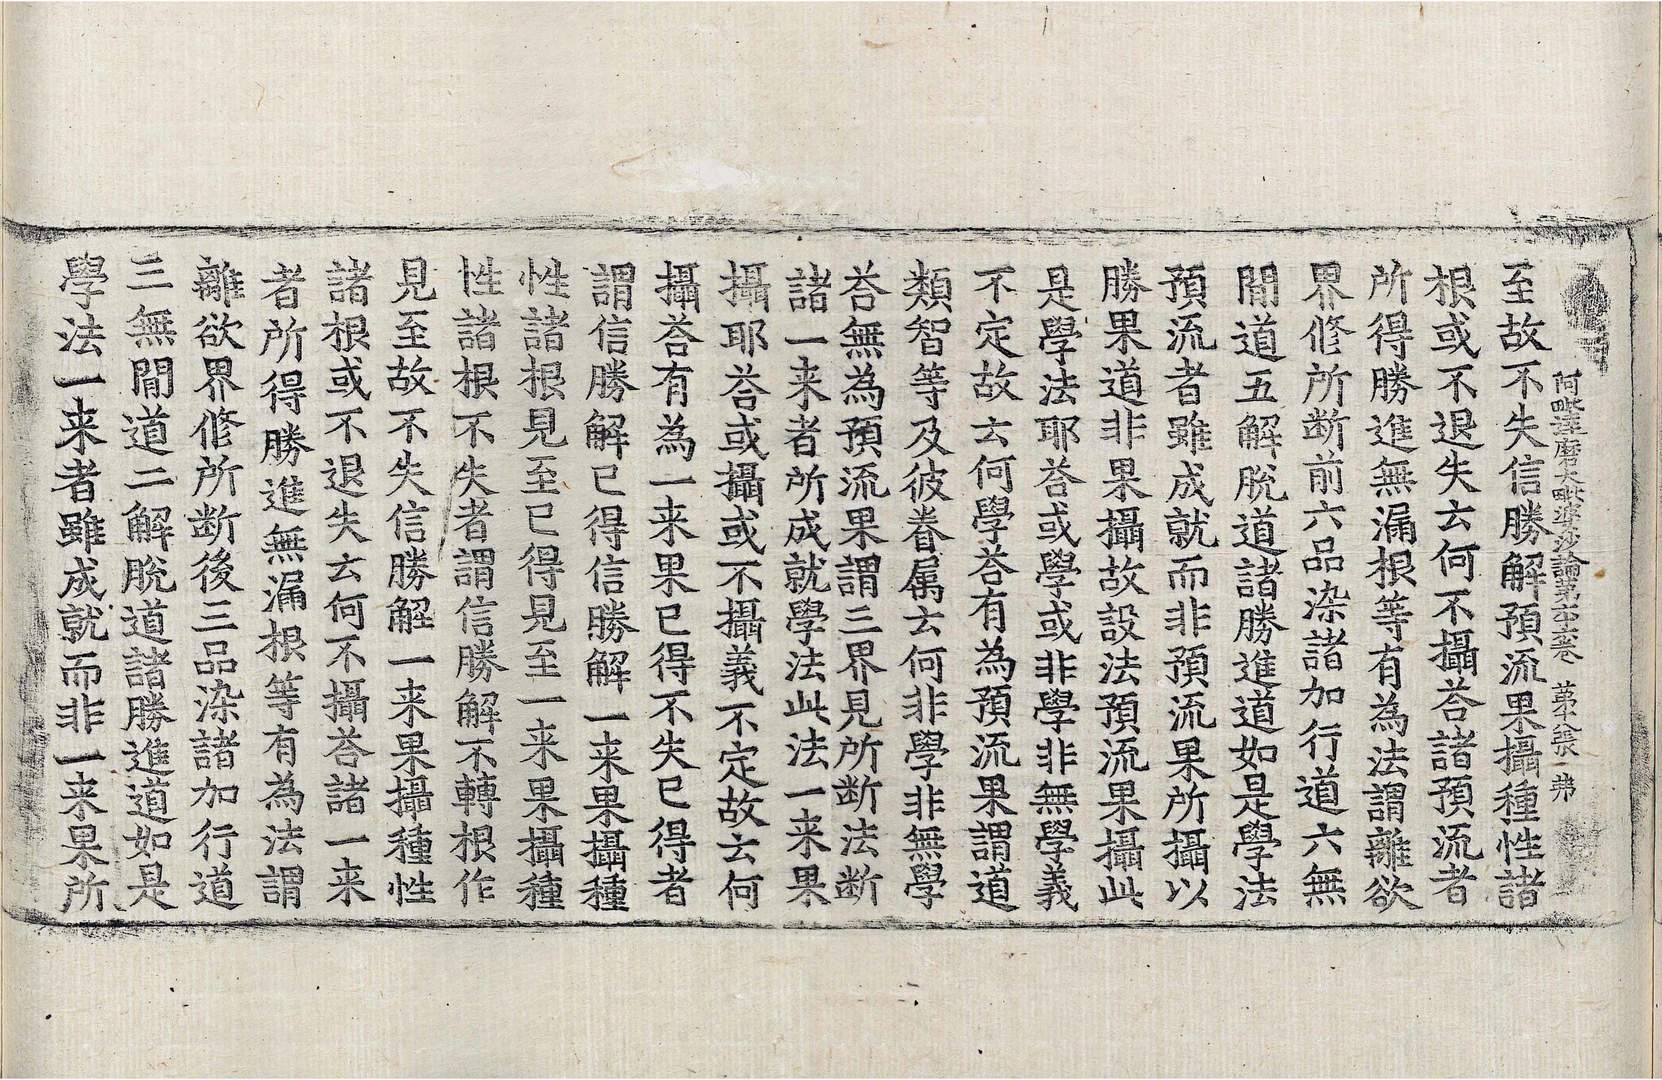 阿毗達磨大毗婆沙論第六十五卷 第十張 弟
至故不失信勝解預流果攝種性諸
根或不退失去何不攝荅諸預流者
所得勝進無漏根等有為法謂離欲
界修所断前六品染諸加行道六無
間道五解脫道諸勝進道如是學法
預流者雖成就而非預流果所攝以
勝果道非果攝故設法預流果攝此
是學法耶荅或學或非學非無學義
不定故去何學荅有為預流果謂道
類智等及彼眷属去何非學非無學
荅無為預流果謂三界見所断法断
諸一来者所成就學法此法一来果
攝耶荅或攝或不攝義不定故去何
攝荅有為一来果已得不失已得者
謂信勝解已得信勝解一来果攝種
性諸根見至已得見至一来果攝種
性諸根不失者謂信勝解不轉根作
見至故不失信勝解一来果攝種性
諸根或不退失去何不攝荅諸一来
者所得勝進無漏根等有為法謂
離欲界修所断後三品染諸加行道
三無間道二解脫道諸勝進道如是
學法一来者雖成就而非一来果所